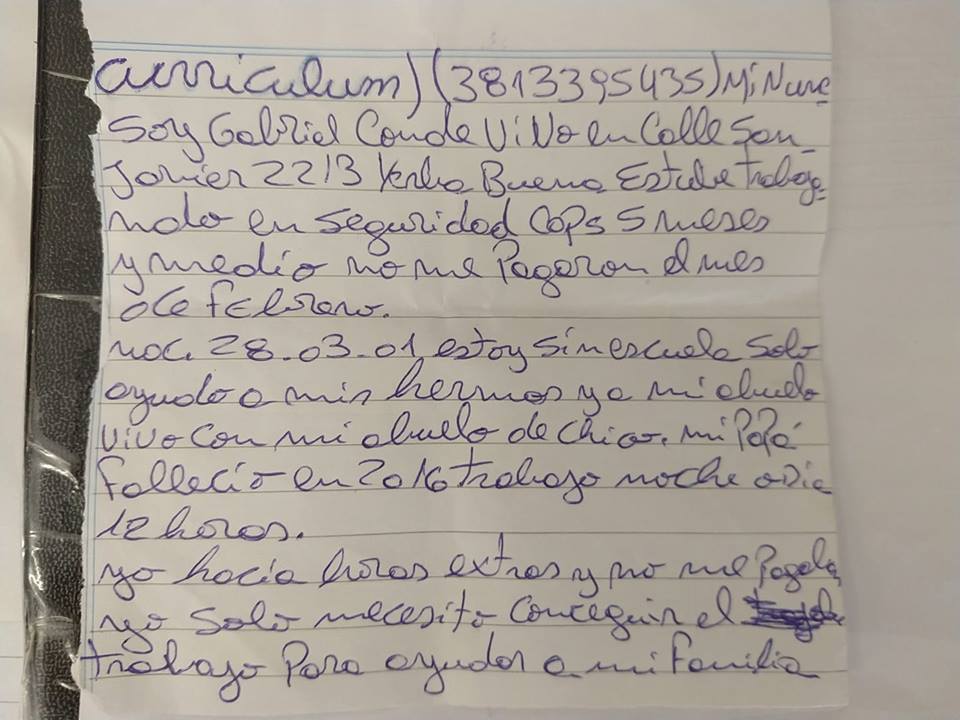 curriculum) (3813395435) Mi Nume
Soy Gabriel Conde ViVo en Calle San
Javier 2213 Yerba Buena Estube trabaja
ndo en seguridad Cops 5 meses
y medio no me Pagaron el mes
de febrero.
nac. 28.03.01 estoy sin escuela solo
ayudo a mis hermos y a mi abuelo
vivo con mi abuelo de chico. mi Papá
fallecio en 2016 trabajo noche o dia
12 horas.
yo hacia horas extras y no me Pagaba
yo solo necesito conceguir el
trabajo Para ayudar a mi familia